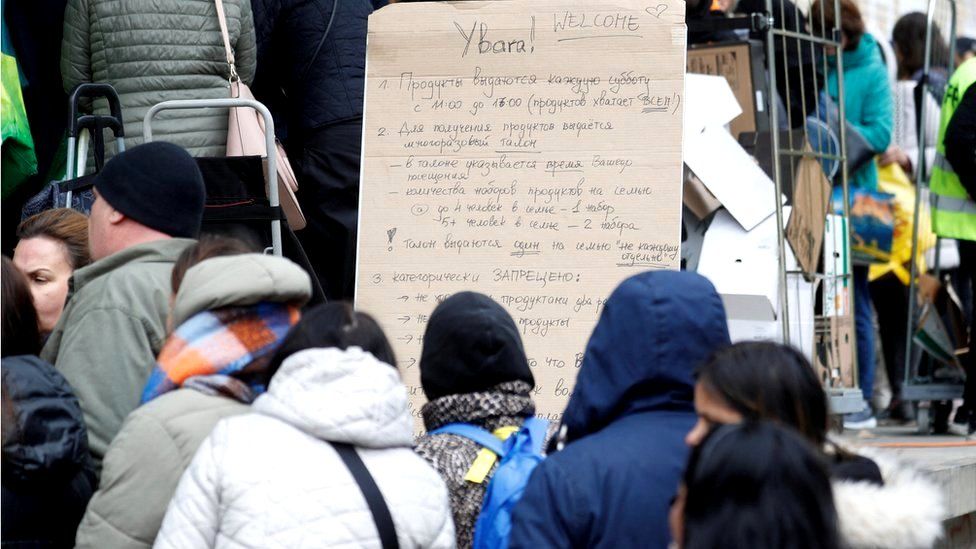 Увага!
WELCOME
1 Продукты выдаются каждую субботу
с 11:00 до 13:00 (продуктов хватает ВСЕМ!)
2. Для получения продуктов выдаётся
многоразовый талон
- в талоне указывается время Вашего
посещения
- количества наборов продуктов на семью
до 4 человек в семье - 1 набор
5+ человек в семье - 2 набора
! Талон выдаются один на семью "не каждому
отдельно"
3. категорически ЗАПРЕЩЕНО:
→ продуктами два
→ продукты
то что